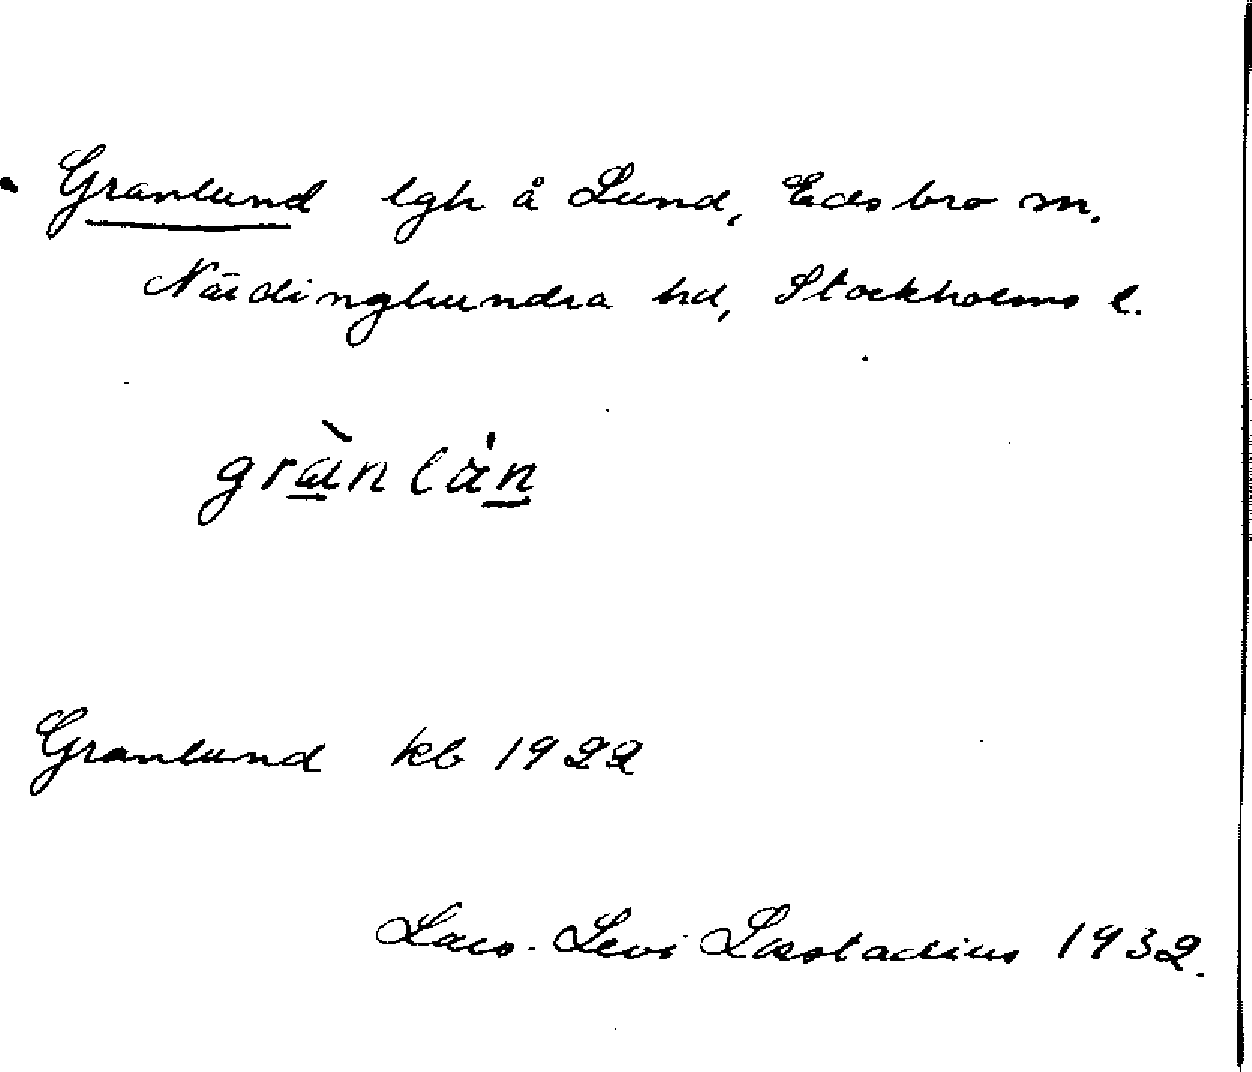 Granlund lgh å Lund, Edsbro sn.
Närdinghundra hd, Stockholms l.
grànlån
Granlund kb 1922
Lars-Levi Læstadius 1932.